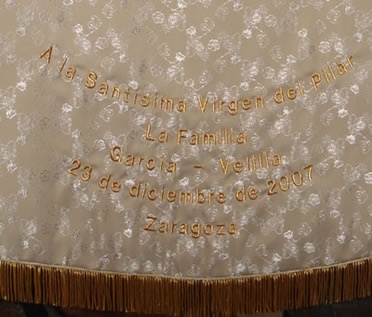 A la Santísima Virgen del Pilar
La Familia
García - Velilla
23 de diciembre de 2007
Zaragoza